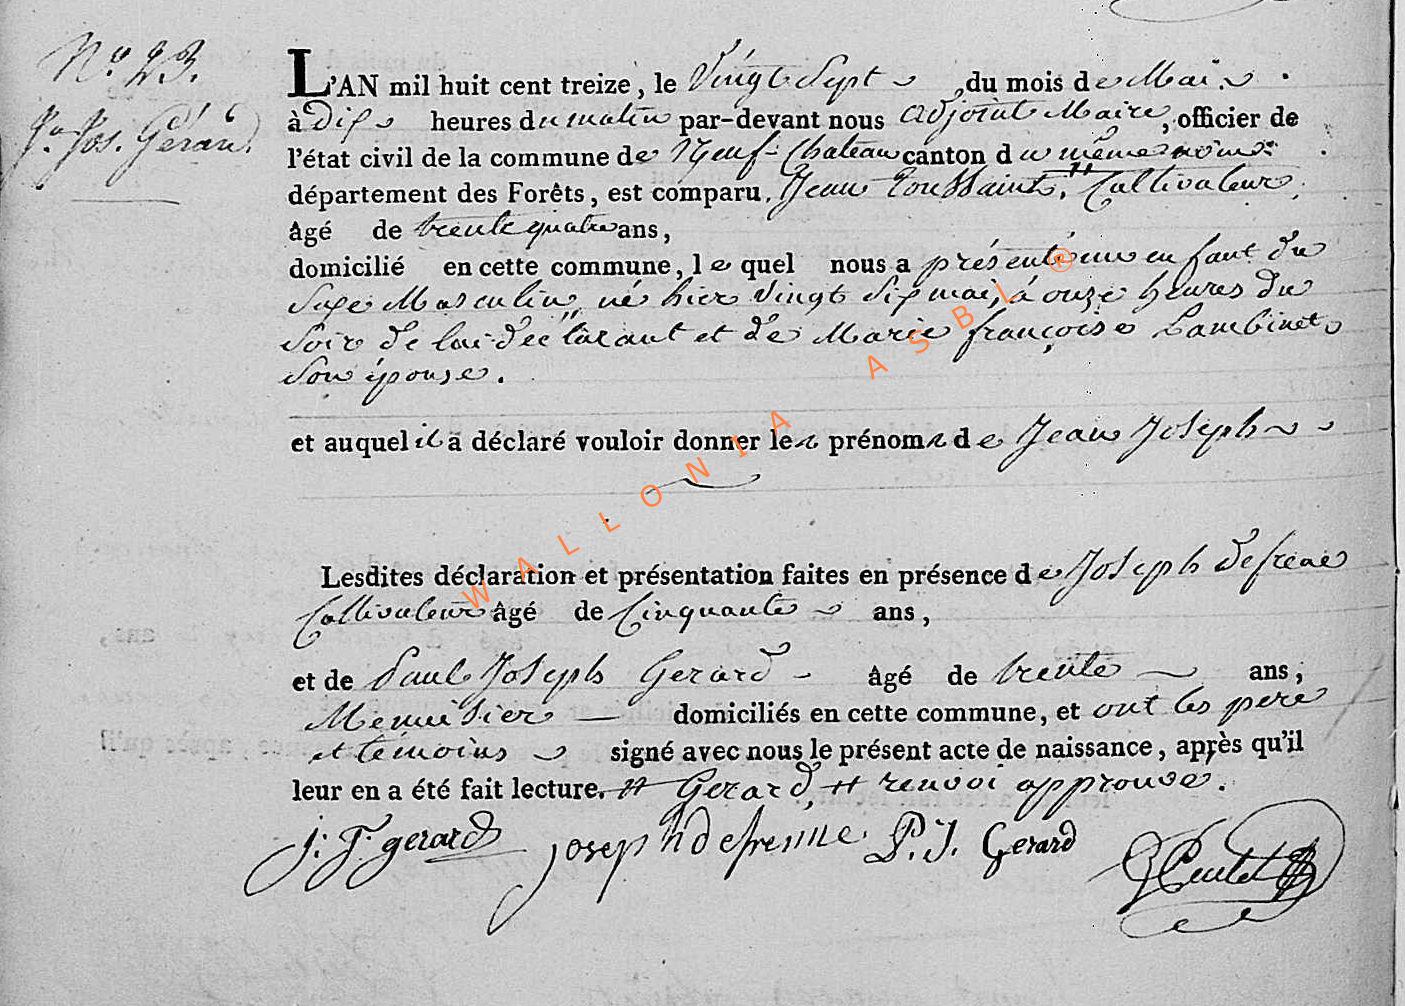 N.o 23.
Jn. Jos. Gérard.
L'AN mil huit cent treize, le Vingt Sept du mois de Mai.
à dix heures du matin par-devant nous adjoint Maire, officier de
l'état civil de la commune de Neuf-Chateau canton du même nom
département des Forêts, est comparu Jean Toussaint, # Cultivateur,
âgé de trente quatre ans,
domicilié en cette commune, le quel nous a présenté un enfant du
Sexe Masculin, né hier Vingt Six mai, à onze heures du
Soir de lui déclarant et de Marie françoise Lambinet
Son épouse.
et auquel il a déclaré vouloir donner les prénoms de Jean Joseph
Lesdites déclaration et présentation faites en présence de Joseph defrene
Cultivateur âgé de Cinquante ans,
et de Paul Joseph Gerard âgé de trente ans,
Menuisier domiciliés en cette commune, et ont les pere
et temoins signé avec nous le présent acte de naissance, après qu'il
leur en a été fait lecture. # Gerard, # renvoi approuvé.
J. T. gerard joseph defrenne P. J. Gerard
WALLONIA ASBL ®